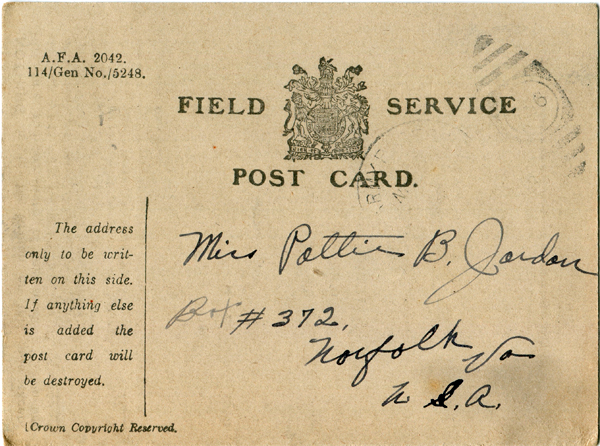 A.F.A. 2042.
114/Gen No./5248.
FIELD SERVICE
POST CARD.
The address
only to be writ-
ten on this side.
If anything else
is added the
post card will
be destroyed.
Miss Pattie B. Jordan
Box # 372,
Norfolk Va
U.S.A.
(Crown Copyright Reserved.